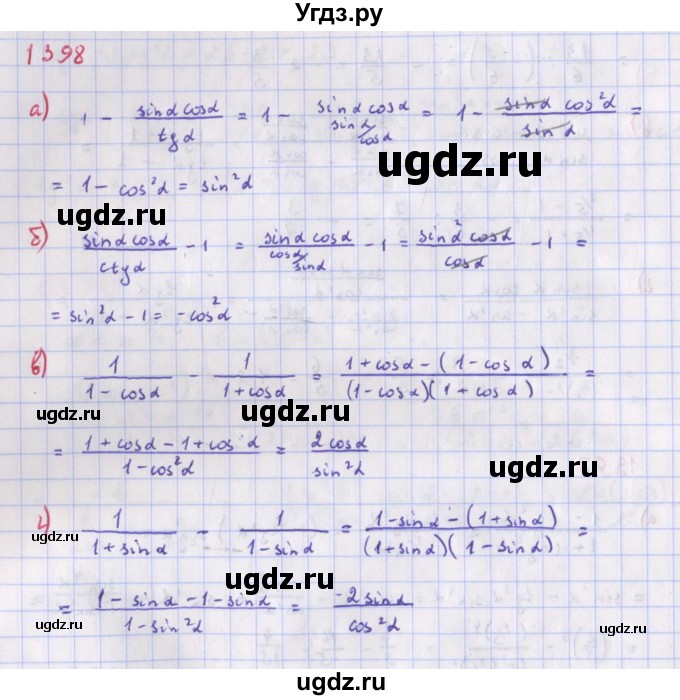 Угдз.ру
1398
а) 1 - sinα cosα / tgα = 1 - sinα cosα / (sinα / cosα) = 1 - sinα cos²α / sinα =
= 1 - cos²α = sin²α
ugdz.ru
ugdz.ru
б) sinα cosα / ctgα - 1 = sinα cosα / (cosα / sinα) - 1 = sin²α cosα / cosα - 1 =
= sin²α - 1 = -cos²α
ugdz.ru
в) 1 / (1 - cosα) - 1 / (1 + cosα) = (1 + cosα - (1 - cosα)) / ((1 - cosα)(1 + cosα)) =
ugdz.ru
= (1 + cosα - 1 + cosα) / (1 - cos²α) = 2cosα / sin²α
ugdz.ru
ugdz.ru
г) 1 / (1 + sinα) - 1 / (1 - sinα) = (1 - sinα - (1 + sinα)) / ((1 + sinα)(1 - sinα)) =
ugdz.ru
= (1 - sinα - 1 - sinα) / (1 - sin²α) = -2sinα / cos²α
ugdz.ru
ugdz.ru
ugdz.ru